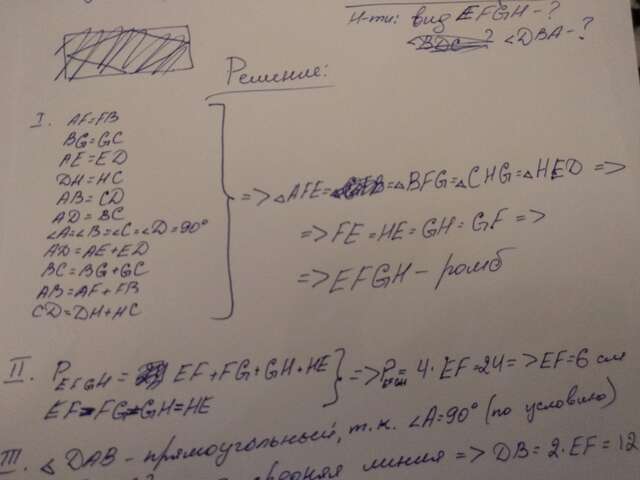 Н-ти: вид EFGH - ?
∠DBA - ?
Решение:
I. AF=FB
BG=GC
AE=ED
DH=HC
AB=CD
AD=BC
∠A=∠B=∠C=∠D=90°
AD=AE+ED
BC=BG+GC
AB=AF+FB
CD=DH+HC
=> △AFE=△BFG=△CHG=△HED =>
=> FE=HE=GH=GF =>
=> EFGH - ромб
II. P EFGH = EF+FG+GH+HE
EF=FG=GH=HE
=> P = 4·EF=24 => EF=6 см
III. △DAB - прямоугольный, т.к. ∠A=90° (по условию)
средняя линия => DB=2·EF=12